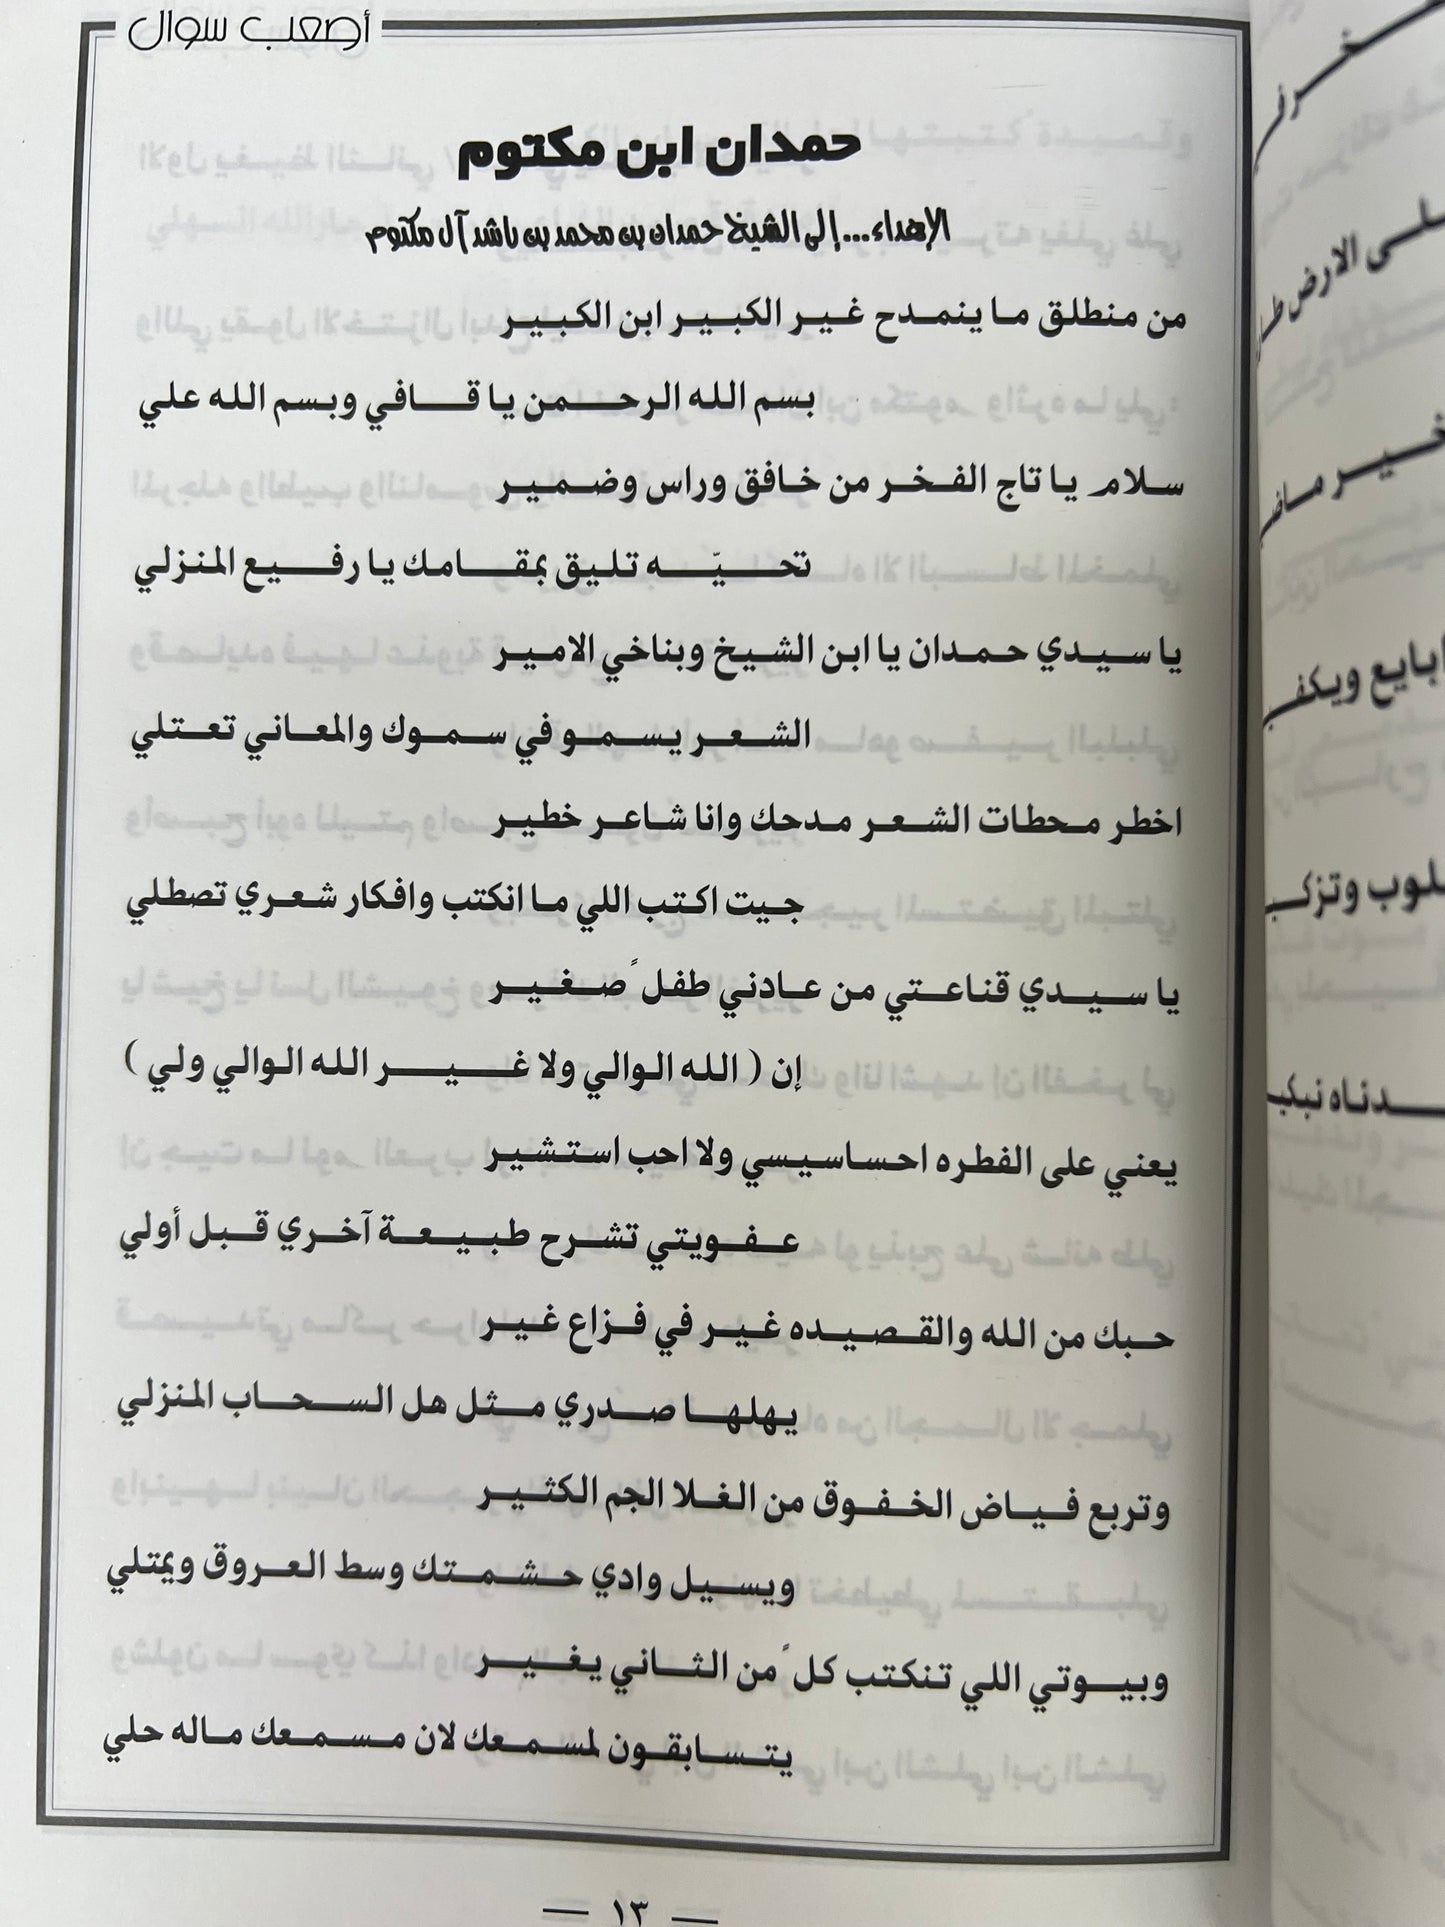 أصعب سوال
حمدان ابن مكتوم
الإهداء...إلى الشيخ حمدان بن محمد بن راشد آل مكتوم
من منطلق ما ينمدح غير الكبير ابن الكبير
بسم الله الرحمن يا قافي وبسم الله علي
سلام يا تاج الفخر من خافق وراس وضمير
تحيّه تليق بمقامك يا رفيع المنزلي
يا سيدي حمدان يا ابن الشيخ وبناخي الامير
الشعر يسمو في سموك والمعاني تعتلي
اخطر محطات الشعر مدحك وانا شاعر خطير
جيت اكتب اللي ما انكتب وافكار شعري تصطلي
يا سيدي قناعتي من عادني طفلً صغير
إن ( الله الوالي ولا غير الله الوالي ولي )
يعني على الفطره احساسيسي ولا احب استشير
عفويتي تشرح طبيعة آخري قبل أولي
حبك من الله والقصيده غير في فزاع غير
يهلها صدري مثل هل السحاب المنزلي
وتربع فياض الخفوق من الغلا الجم الكثير
ويسيل وادي حشمتك وسط العروق ويمتلي
وبيوتي اللي تنكتب كلً من الثاني يغير
يتسابقون لمسمعك لان مسمعك ماله حلي
— ١٣ —